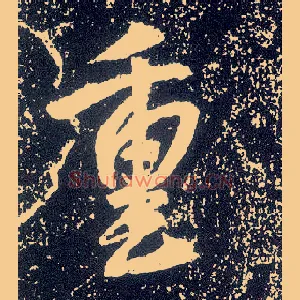 重
Shufawang.cn